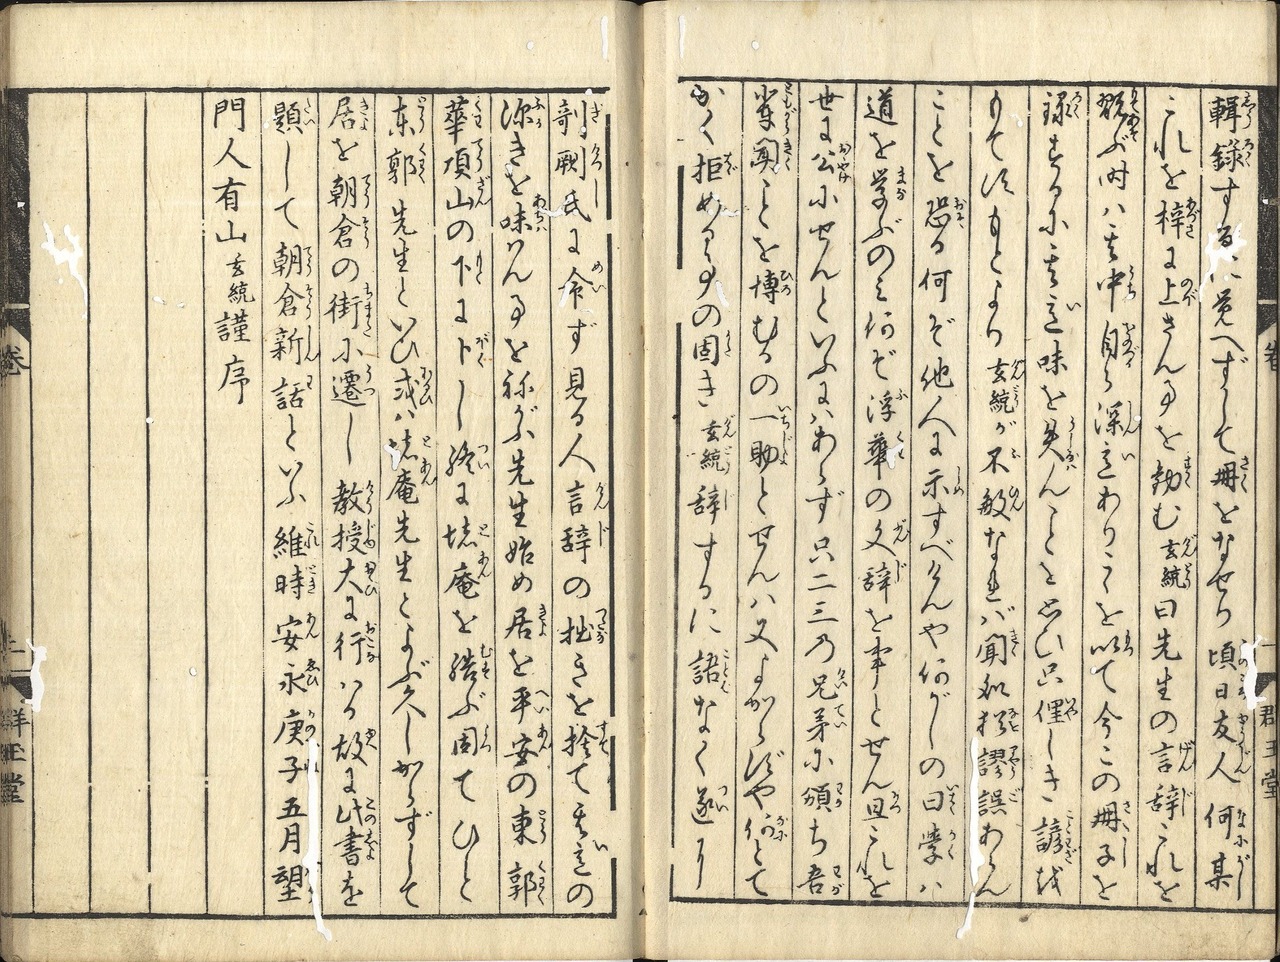 輯録するに覚へずして冊をなせり頃日友人何某
これを梓に上さん事を勧む玄統曰先生の言辞これを
翫ぶ時ハ其中自ら深意ありこゝを以て今この冊子を
録するに其意味を失んことを思ひ只俚しき諺を
もて
もとより玄統が不敏なれバ聞
謬誤あらん
ことを恐る何ぞ他人に示すべけんや何がしの曰学ハ
道を学ぶのミ何ぞ浮華の文辞を事とせん且これを
世に公にせんといふにハあらず只二三の兄弟に頒ち吾
輩聞ことを博むるの一助とせんハ又よからずや何とて
かく拒める事の固き玄統辞するに語なく遂に
剞劂氏に命ず見る人言辞の拙きを捨て其意の
深きを味ハん事をねがふ先生始め居を平安の東郭
華頂山の下に卜し終に
庵を結ぶ因てひと
東郭先生といひ或ハ
庵先生とよぶ久しからずして
居を朝倉の街に遷し教授大に行ハる故に此書を
題して朝倉新話といふ維時安永庚子五月望
門人有山玄統謹序
巻
一
群玉堂
巻
二
群玉堂